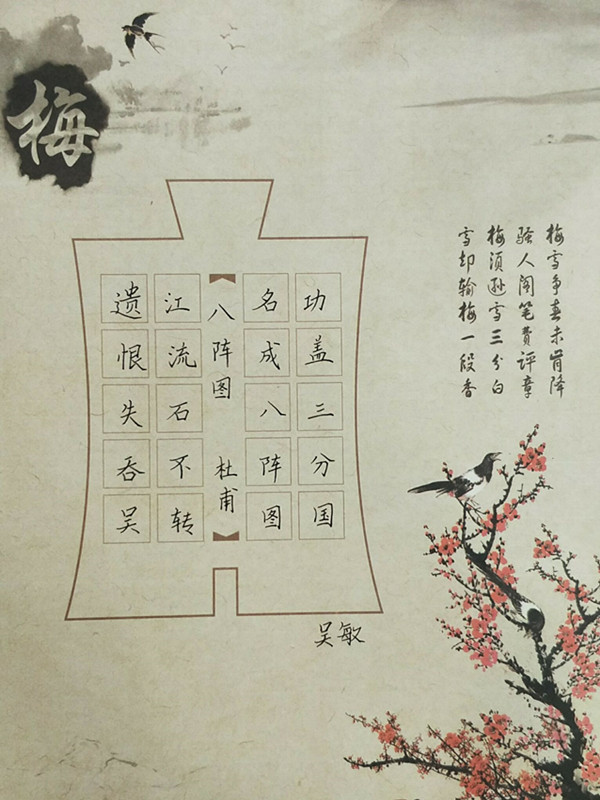 梅
梅雪争春未肯降
骚人阁笔费评章
梅须逊雪三分白
雪却输梅一段香
功盖三分国
名成八阵图
八阵图 杜甫
江流石不转
遗恨失吞吴
吴敏